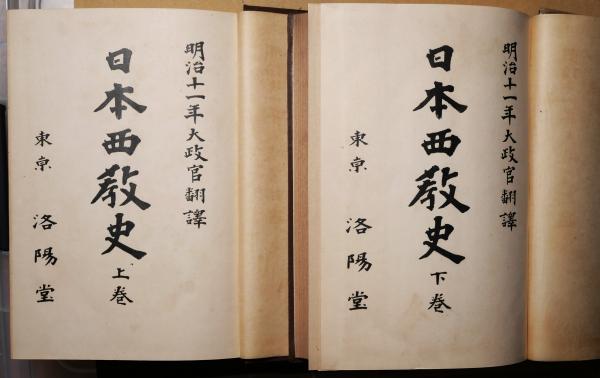 明治十一年大政官翻譯
日本西教史 上巻
東京 洛陽堂
明治十一年大政官翻譯
日本西教史 下巻
東京 洛陽堂